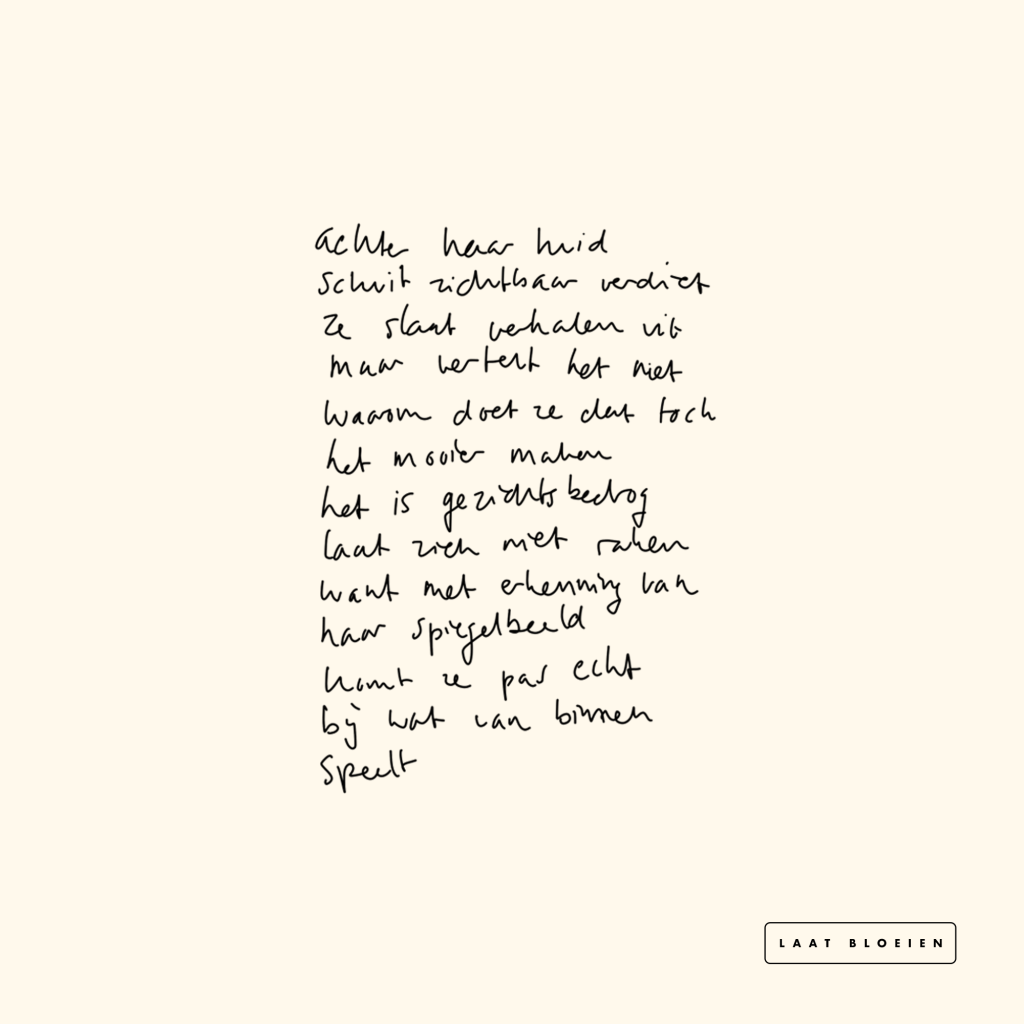 achter haar huid
schuilt zichtbaar verdriet
ze slaat verhalen uit
maar vertelt het niet
waarom doet ze dat toch
het mooier maken
het is gezichtsbedrog
laat zich niet raken
want met erkenning van
haar spiegelbeeld
komt ze pas echt
bij wat van binnen
speelt
LAAT BLOEIEN